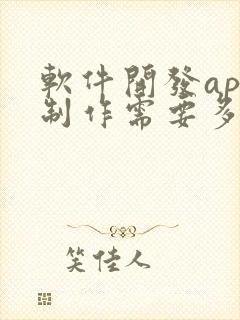 軟件開發ap
制作需要多
笑佳人